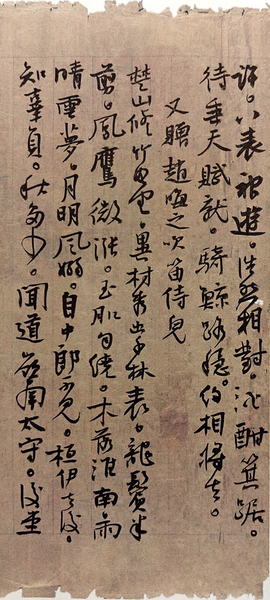 許。八表神遊。浩然相對。酒酣箕踞。
待垂天賦就。騎鯨路穩。約相將去。
又贈趙晦之吹笛侍兒
楚山修竹如雲。異材秀出千林表。龍鬢半
剪。鳳膺微漲。玉肌勻繞。木落淮南。雨
晴雲夢。月明風嫋。自中郎不見。桓伊去後。
知辜負。秋多少。聞道嶺南太守。後堂